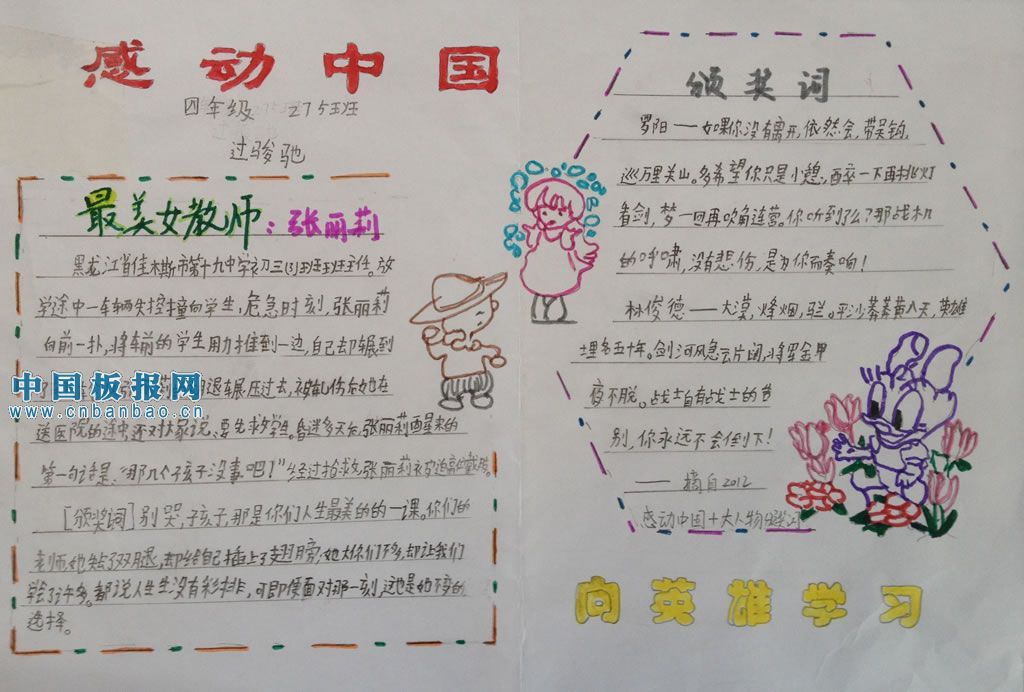 感动中国
四年级 275班
过骏驰
最美女教师：张丽莉
黑龙江省佳木斯市第十九中学初三(3)班班主任。放
学途中一车辆失控撞向学生，危急时刻，张丽莉
向前一扑，将车前的学生用力推到一边，自己却辗到
退辗压过去，被
中国板报网
www.cnbanbao.cn
送医院的途中还对大家说，要先求学生。昏迷多天后，张丽莉醒来的
第一句话是，“那几个孩子没事吧！”经过抢求，张丽莉
[颁奖词]别哭，孩子，那是你们人生最美的的一课。你们的
老师，她失去了双腿，却给自己插上了翅膀；她大你们不多，却让我们
学会了许多。都说人生没有彩排，可即便面对那一刻，这也是她不变的
选择。
颁奖词
罗阳——如果你没有离开，依然会，带吴钩，
巡万里关山。多希望你只是小憩，醉一下再挑灯
看剑，梦一回再吹角连营。你听到了么？那战机
的呼啸，没有悲伤，是为你而奏响！
林俊德——大漠，烽烟，马兰。平沙莽莽黄入天，英雄
埋名五十年。剑河风急云片阔，将军金甲
夜不脱。战士自有战士的告
别，你永远不会倒下！
——摘自2012
感动中国十大人物颁奖词
向英雄学习